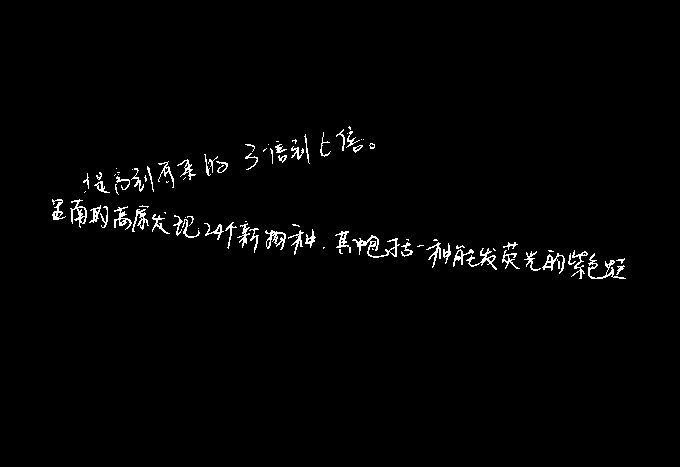 提高到原来的3倍到七倍。
里南的高原发现24个新物种,其中包括一种能发荧光的紫色蟾